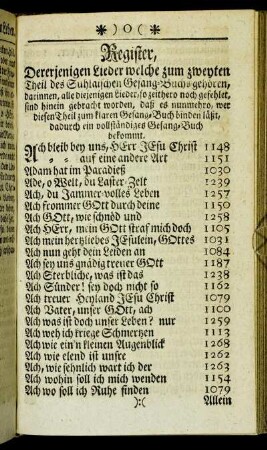 * ) o ( *
Register,
Dererjenigen Lieder welche zum zweyten
Theil des Suhlaischen Gesang-Buchs gehören,
darinnen, alle diejenigen Lieder, so zeithero noch gefehlet,
sind hinein gebracht worden, daß es nunmehro, wer
diesen Theil zum klaren Gesang-Buch binden läßt,
dadurch ein vollständiges Gesang-Buch
bekommt.
Ach bleib bey uns, HErr JEsu Christ 1148
A, " " auf eine andere Art 1151
Adam hat im Paradieß 1030
Ade, o Welt, du Laster-Zelt 1239
Ach, du Jammer-volles Leben 1257
Ach frommer GOtt durch deine 1150
Ach GOtt, wie schnöd und 1258
Ach HErr, mein GOtt straf mich doch 1105
Ach mein hertzliebes JEsulein, GOttes 1031
Ach nun geht dein Leiden an 1084
Ach sey uns gnädig treuer GOtt 1187
Ach Sterbliche, was ist das 1238
Ach Sünder! sey doch nicht so 1162
Ach treuer Heyland JEsu Christ 1079
Ach Vater, unser GOtt, ach 1100
Ach was ist doch unser Leben? nur 1259
Ach weh ich kriege Schmertzen 1113
Ach wie ein'n kleinen Augenblick 1268
Ach wie elend ist unsre 1262
Ach, wie sehnlich wart ich der 1263
Ach wohin soll ich mich wenden 1154
Ach wo soll ich Ruhe finden 1079
Allein